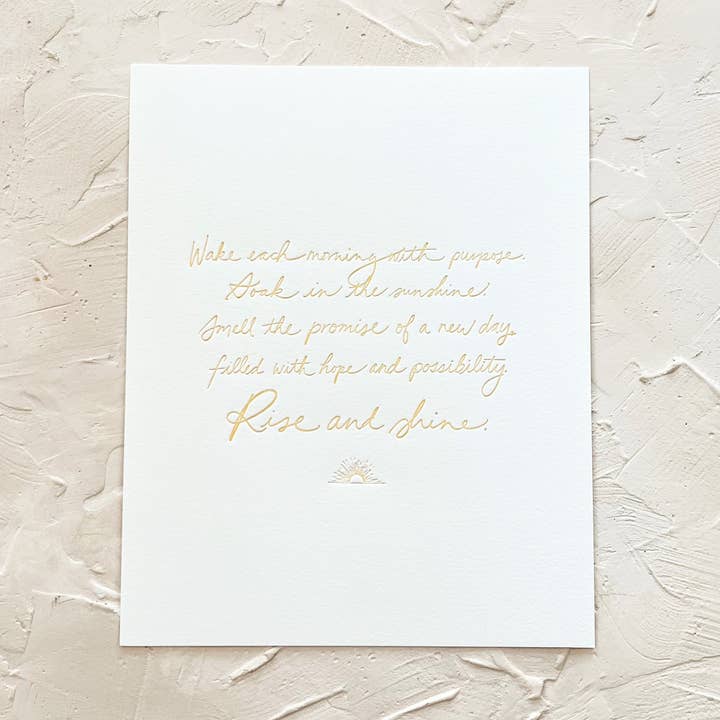 Wake each morning with purpose.
Soak in the sunshine.
Smell the promise of a new day,
filled with hope and possibility.
Rise and shine.